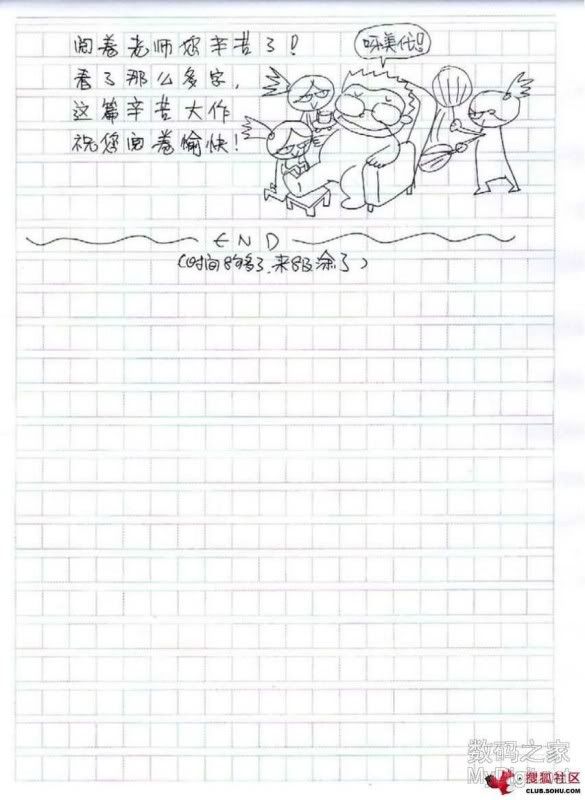 阅卷老师您辛苦了！
看了那么多字，
这篇辛苦大作
祝您阅卷愉快！
呀美代!!
END
数码之家
搜狐社区
CLUB.SOHU.COM